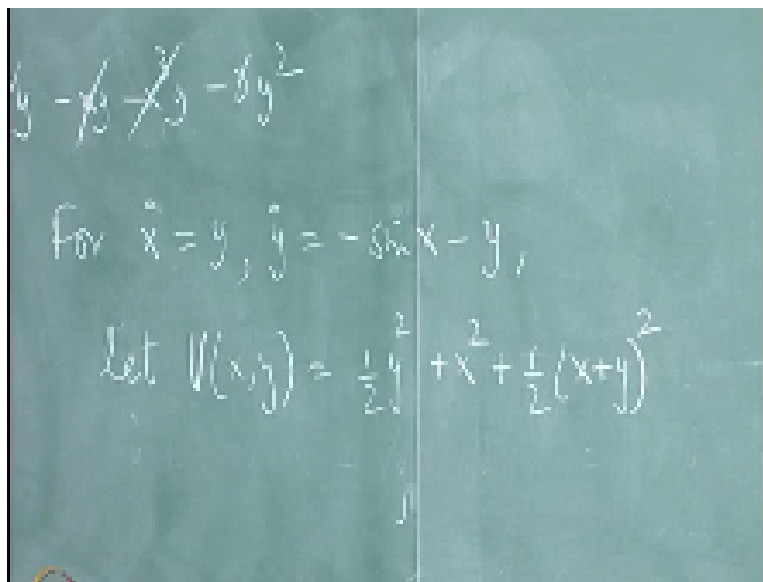 y - xy - x³y - γy²
For ẋ = y, ẏ = - sin x - y,
Let V(x,y) = ½y² + x² + ½(x+y)²